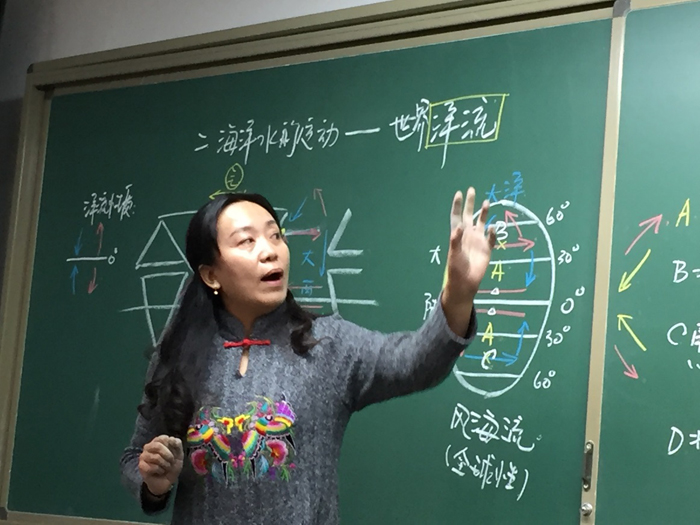 二海洋水的运动 — 世界洋流
洋流性质:
0°
大
西
大洋
B
60°
大
A
30°
0°
A
30°
C
60°
风海流
(全球性)
A
B
C
D